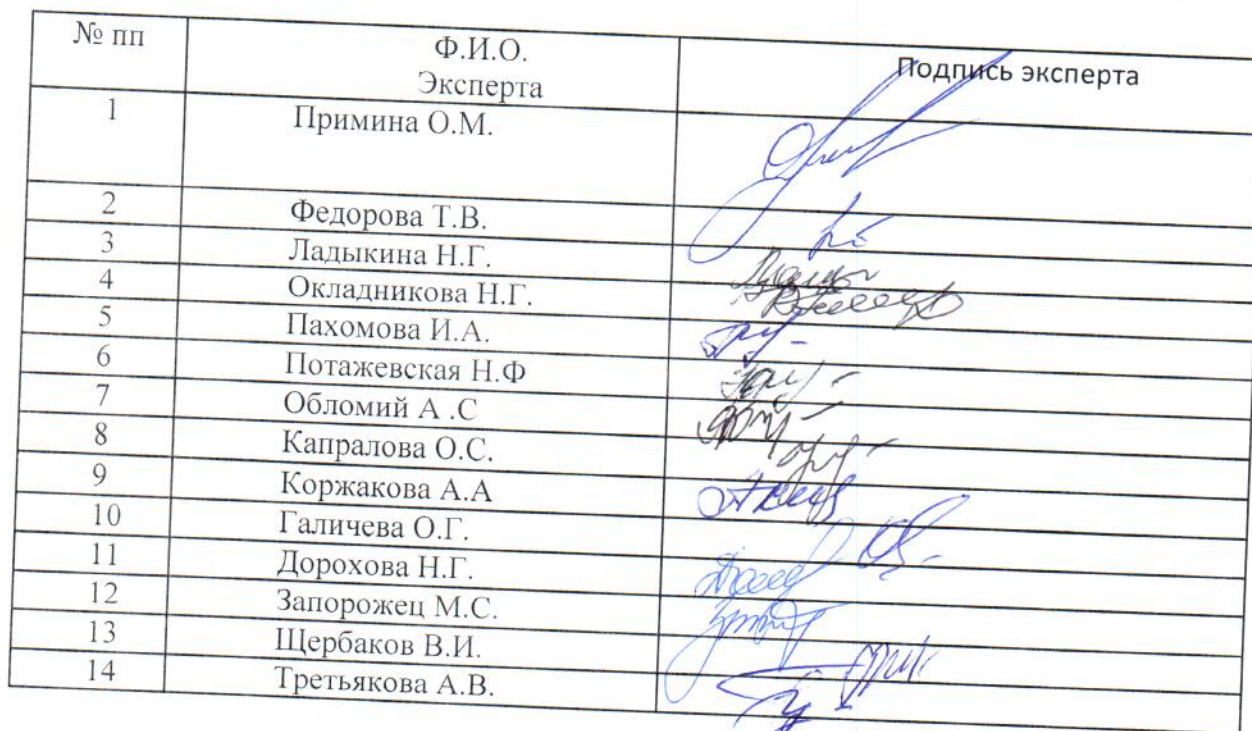 № пп Ф.И.О. Эксперта Подпись эксперта
1 Примина О.М.
2 Федорова Т.В.
3 Ладыкина Н.Г.
4 Окладникова Н.Г.
5 Пахомова И.А.
6 Потажевская Н.Ф
7 Обломий А .С
8 Капралова О.С.
9 Коржакова А.А
10 Галичева О.Г.
11 Дорохова Н.Г.
12 Запорожец М.С.
13 Щербаков В.И.
14 Третьякова А.В.